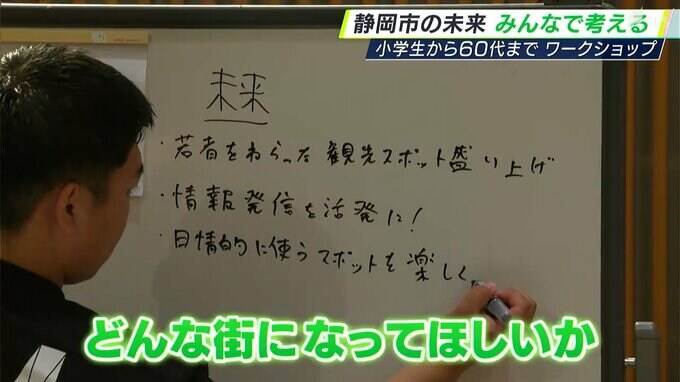 静岡市の未来 みんなで考える
小学生から60代まで ワークショップ
未来
・若者をねらった観光スポット盛り上げ
・情報発信を活発に!
・日情的に使うスポットを楽しく
どんな街になってほしいか